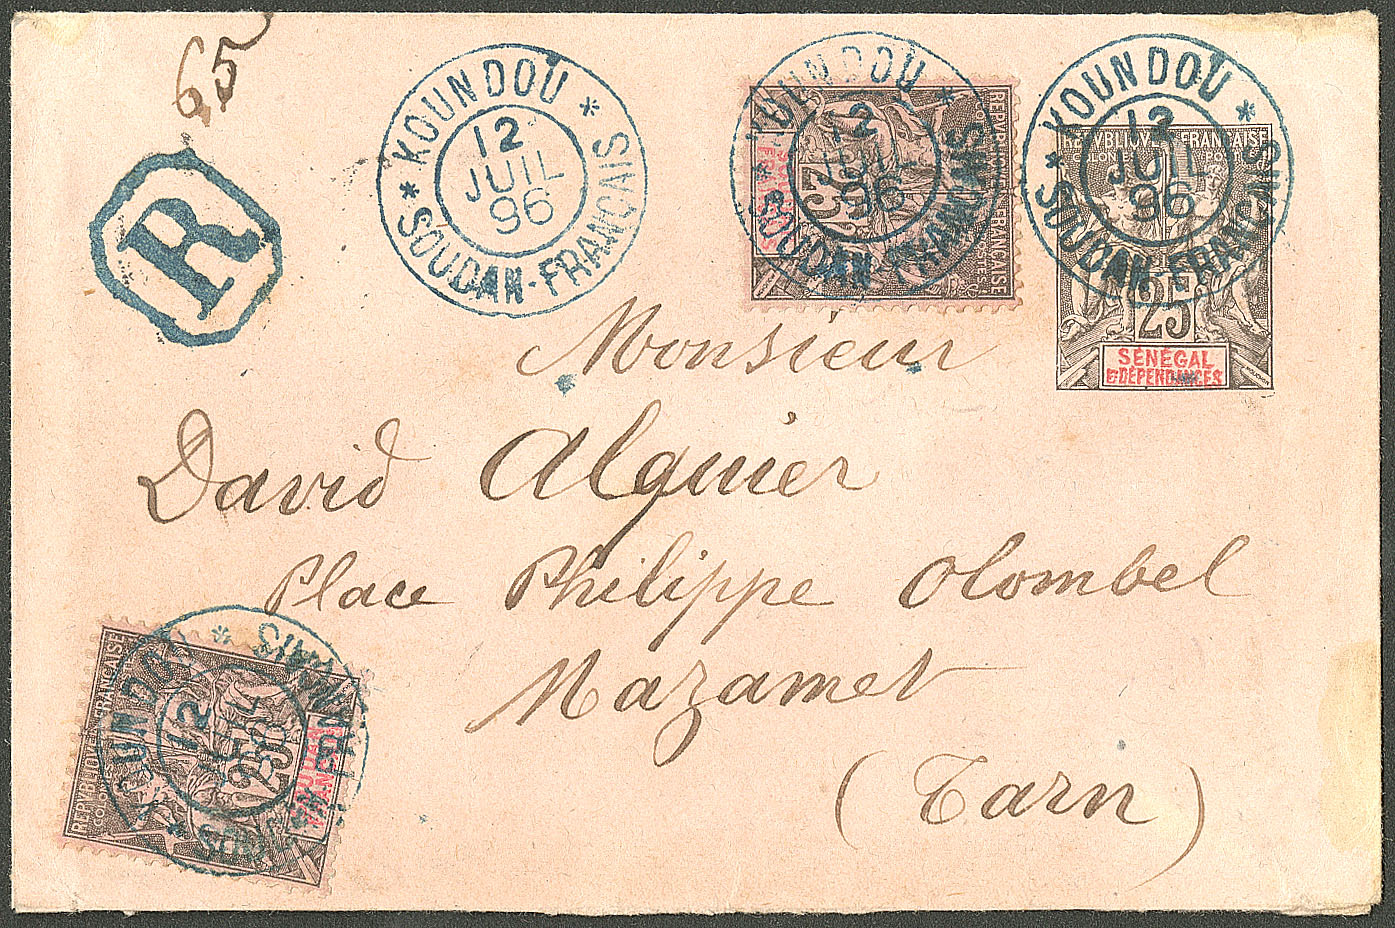 65
R
KOUNDOU
12
JUIL
96
SOUDAN-FRANÇAIS
KOUNDOU
12
JUIL
96
SOUDAN-FRANÇAIS
25
REPVBLIQVE FRANÇAISE
KOUNDOU
12
JUIL
96
SOUDAN-FRANÇAIS
REPVBLIQVE FRANÇAISE
COLONIES POSTES
25
SÉNÉGAL
ET DÉPENDANCES
Monsieur
David Alquier
Place Philippe Olombel
Mazamet
(Tarn)
REPVBLIQVE FRANÇAISE
25
KOUNDOU
12
JUIL
96
SOUDAN-FRANÇAIS